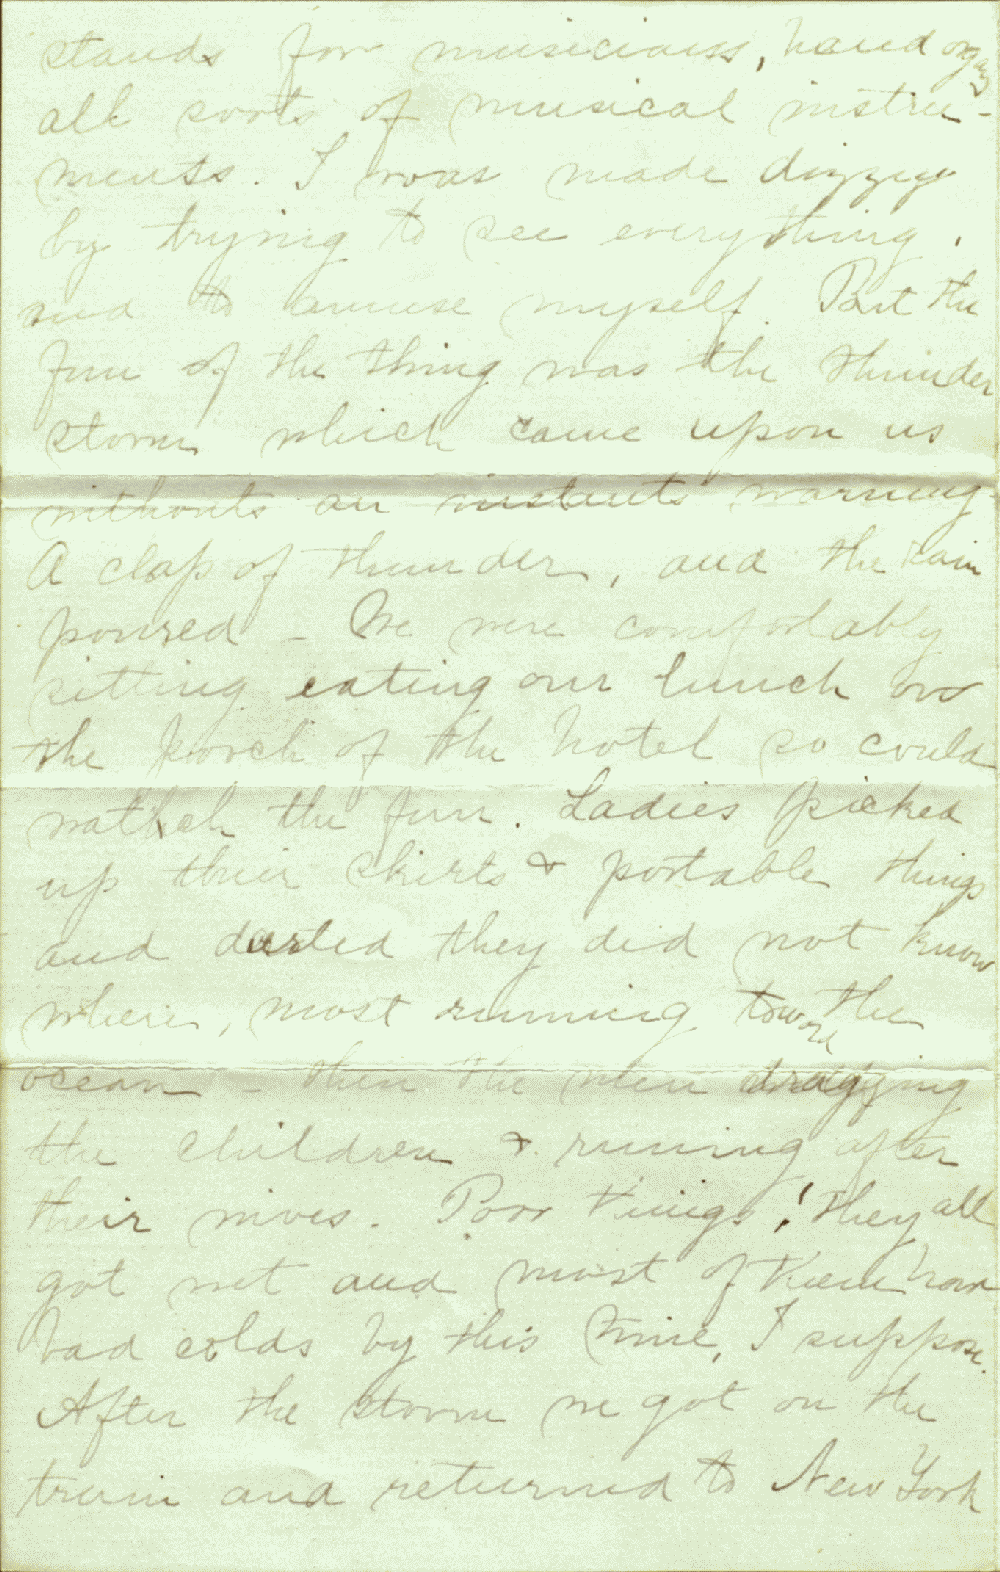 stands for musicians, hand organs
all sorts of musical instru-
ments. I was made dizzy
by trying to see everything.
and to amuse myself. But the
fun of the thing was the thunder
storm which came upon us
without an instants warning.
A clap of thunder, and the rain
poured - We were comfortably
sitting eating our lunch on
the porch of the hotel so could
watch the fun. Ladies picked
up their skirts & portable things
and darted they did not know
where, most running toward the
ocean - then the men dragging
the children & running after
their wives. Poor things! They all
got wet and most of them have
bad colds by this time, I suppose.
After the storm we got on the
train and returned to New York